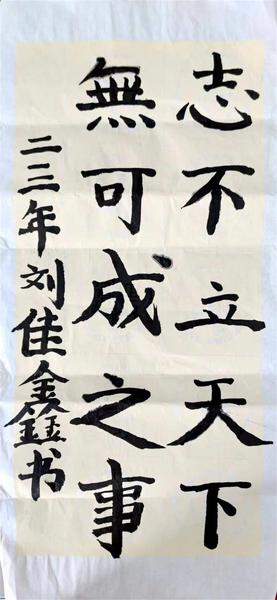 志不立天下
無可成之事
二三年刘佳鑫书